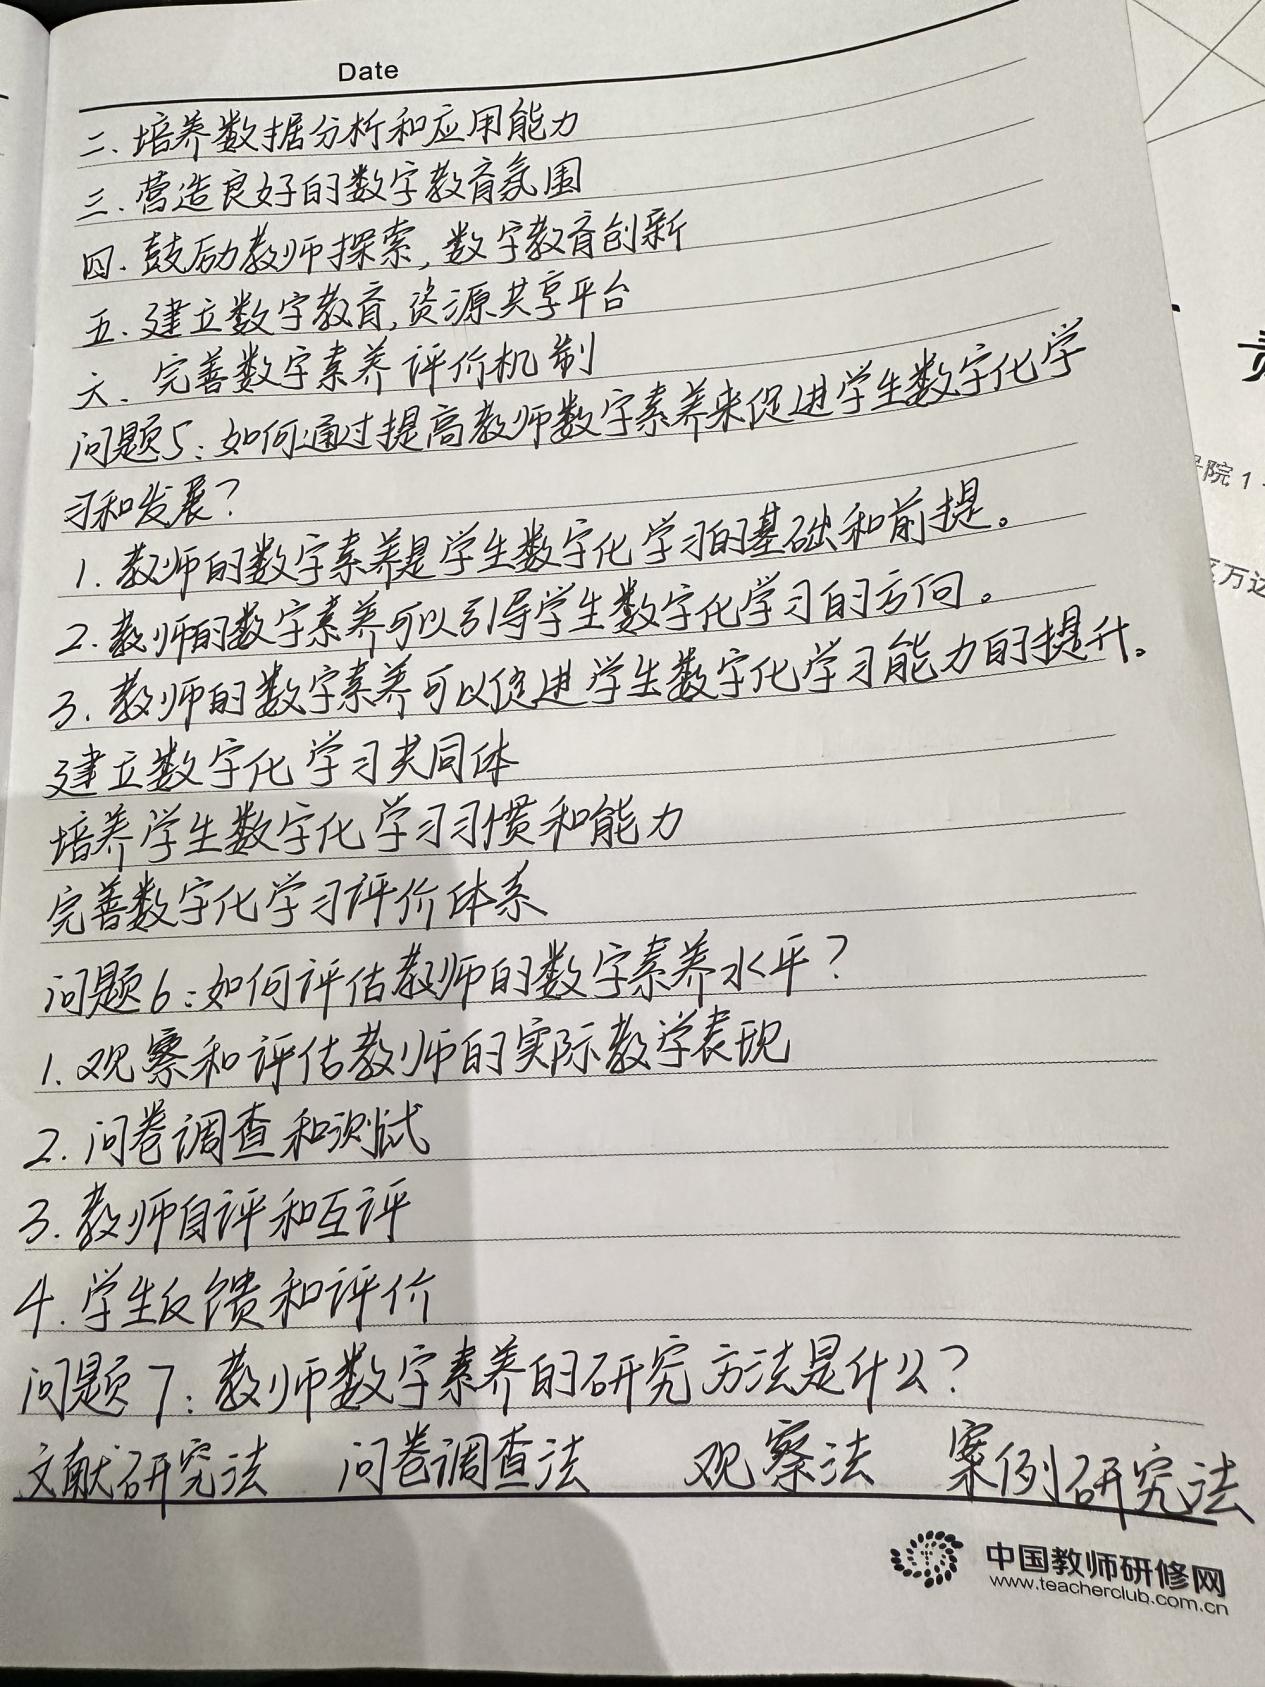 Date
二.培养数据分析和应用能力
三.营造良好的数字教育氛围
四.鼓励教师探索,数字教育创新
五.建立数字教育,资源共享平台
六.完善数字素养评价机制
问题5:如何通过提高教师数字素养来促进学生数字化学
习和发展?
1.教师的数字素养是学生数字化学习的基础和前提。
2.教师的数字素养可以引导学生数字化学习的方向。
3.教师的数字素养可以促进学生数字化学习能力的提升。
建立数字化学习共同体
培养学生数字化学习习惯和能力
完善数字化学习评价体系
问题6:如何评估教师的数字素养水平?
1.观察和评估教师的实际教学表现
2.问卷调查和测试
3.教师自评和互评
4.学生反馈和评价
问题7:教师数字素养的研究方法是什么?
文献研究法 问卷调查法 观察法 案例研究法
中国教师研修网
www.teacherclub.com.cn
院1
万达